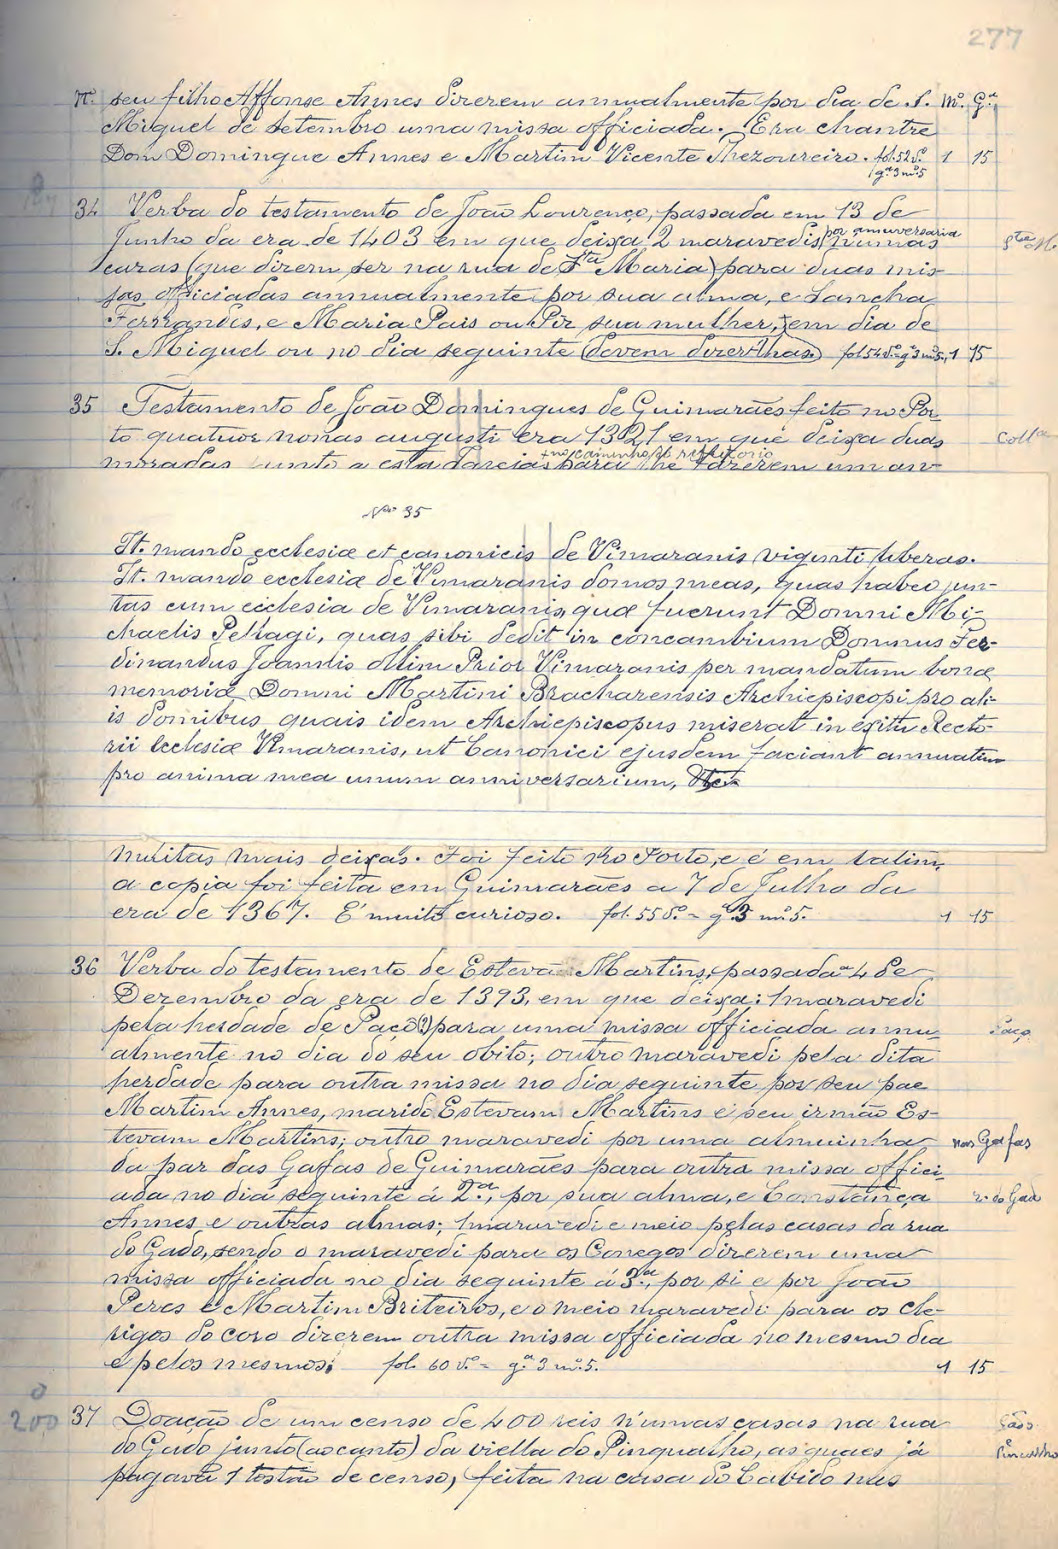 277
Nº. seu filho Affonso Annes dizerem annualmente por dia de S. Mº. G.ª
Miguel de setembro uma missa officiada. Era chantre
Dom Domingue Annes e Martim Vicente Thezoureiro. fol. 52 vº. 1 15
g.ª 3 nº. 5
34 Verba do testamento de João Lourenço, passada em 13 de
Junho da era de 1403 em que deixa 2 maravedis por anniversaria n'umas
Sta M.
cazas (que dizem ser na rua de Sta Maria) para duas mis-
sas officiadas annualmente por sua alma, e Sancha
Ferrnandis, e Maria Pais ou Pir sua mulher, em dia de
S. Miguel ou no dia seguinte (devem dizer-lhas.) fol. 54 vº = gª 3 nº 5. 1 15
35 Testamento de João Domingues de Guimarães feito no Por-
to quatuor nonas augusti era 1321 em que deixa duas
Coll.ª
+ no caminho do refeitorio
moradas junto a esta para lhe fazerem um an-
Nº 35
It. mando ecclesiæ et canonicis de Vimaranis viginti liberas.
It. mando ecclesiæ de Vimaranis domos meas, quas habeo jun-
tas cum ecclesia de Vimaranis, quæ fuerunt Domni Mi-
chaelis Pellagi, quas sibi dedit in concambium Domnus Fer-
dinandus Joannis ollim Prior Vimaranis per mandatum bonæ
memoriæ Domni Martini Bracharensis Archiepiscopi pro ali-
is domibus quais idem Archiepiscopus miserat in exitu Recto-
rii Ecclesiæ Vimaranis, ut Canonici ejusdem faciant annuatim
pro anima mea unum anniversarium,
muitas mais deixas. Foi feito no Porto, e é em latim,
a copia foi feita em Guimarães a 7 de Julho da
era de 1367. É muito curioso. fol. 55 vº. = gª 3 nº. 5. 1 15
36 Verba do testamento de Estevã Martins, passada a 4 de
Dezembro da era de 1393, em que deixa: 1 maravedi
pela herdade de Paçô (?) para uma missa officiada annu-
Paço.
almente no dia do seu obito; outro maravedi pela dita
herdade para outra missa no dia seguinte por seu pae
Martim Annes, marido Estevam Martins e seu irmão Es-
tevam Martins; outro maravedi por uma almuinha
nas Gafas
da par das Gafas de Guimarães para outra missa offici-
ada no dia seguinte á 2ª., por sua alma, e Constança
r. do Gado
Annes e outras almas; 1 maravedi e meio pelas casas da rua
do Gado, sendo o maravedi para os Conegos dizerem uma
missa officiada no dia seguinte á 3ª., por si e por João
Peres e Martim Briteiros, e o meio maravedi para os cle-
rigos do coro dizerem outra missa officiada no mesmo dia
e pelos mesmos; fol. 60 vº. = gª 3 nº. 5. 1 15
0
200
37 Doação de um censo de 400 reis n'umas casas na rua
do Gado junto (ao canto) da viella do Pinqualho, as quaes já
pagavã 1 tostão de censo, feita na casa do Cabido nas